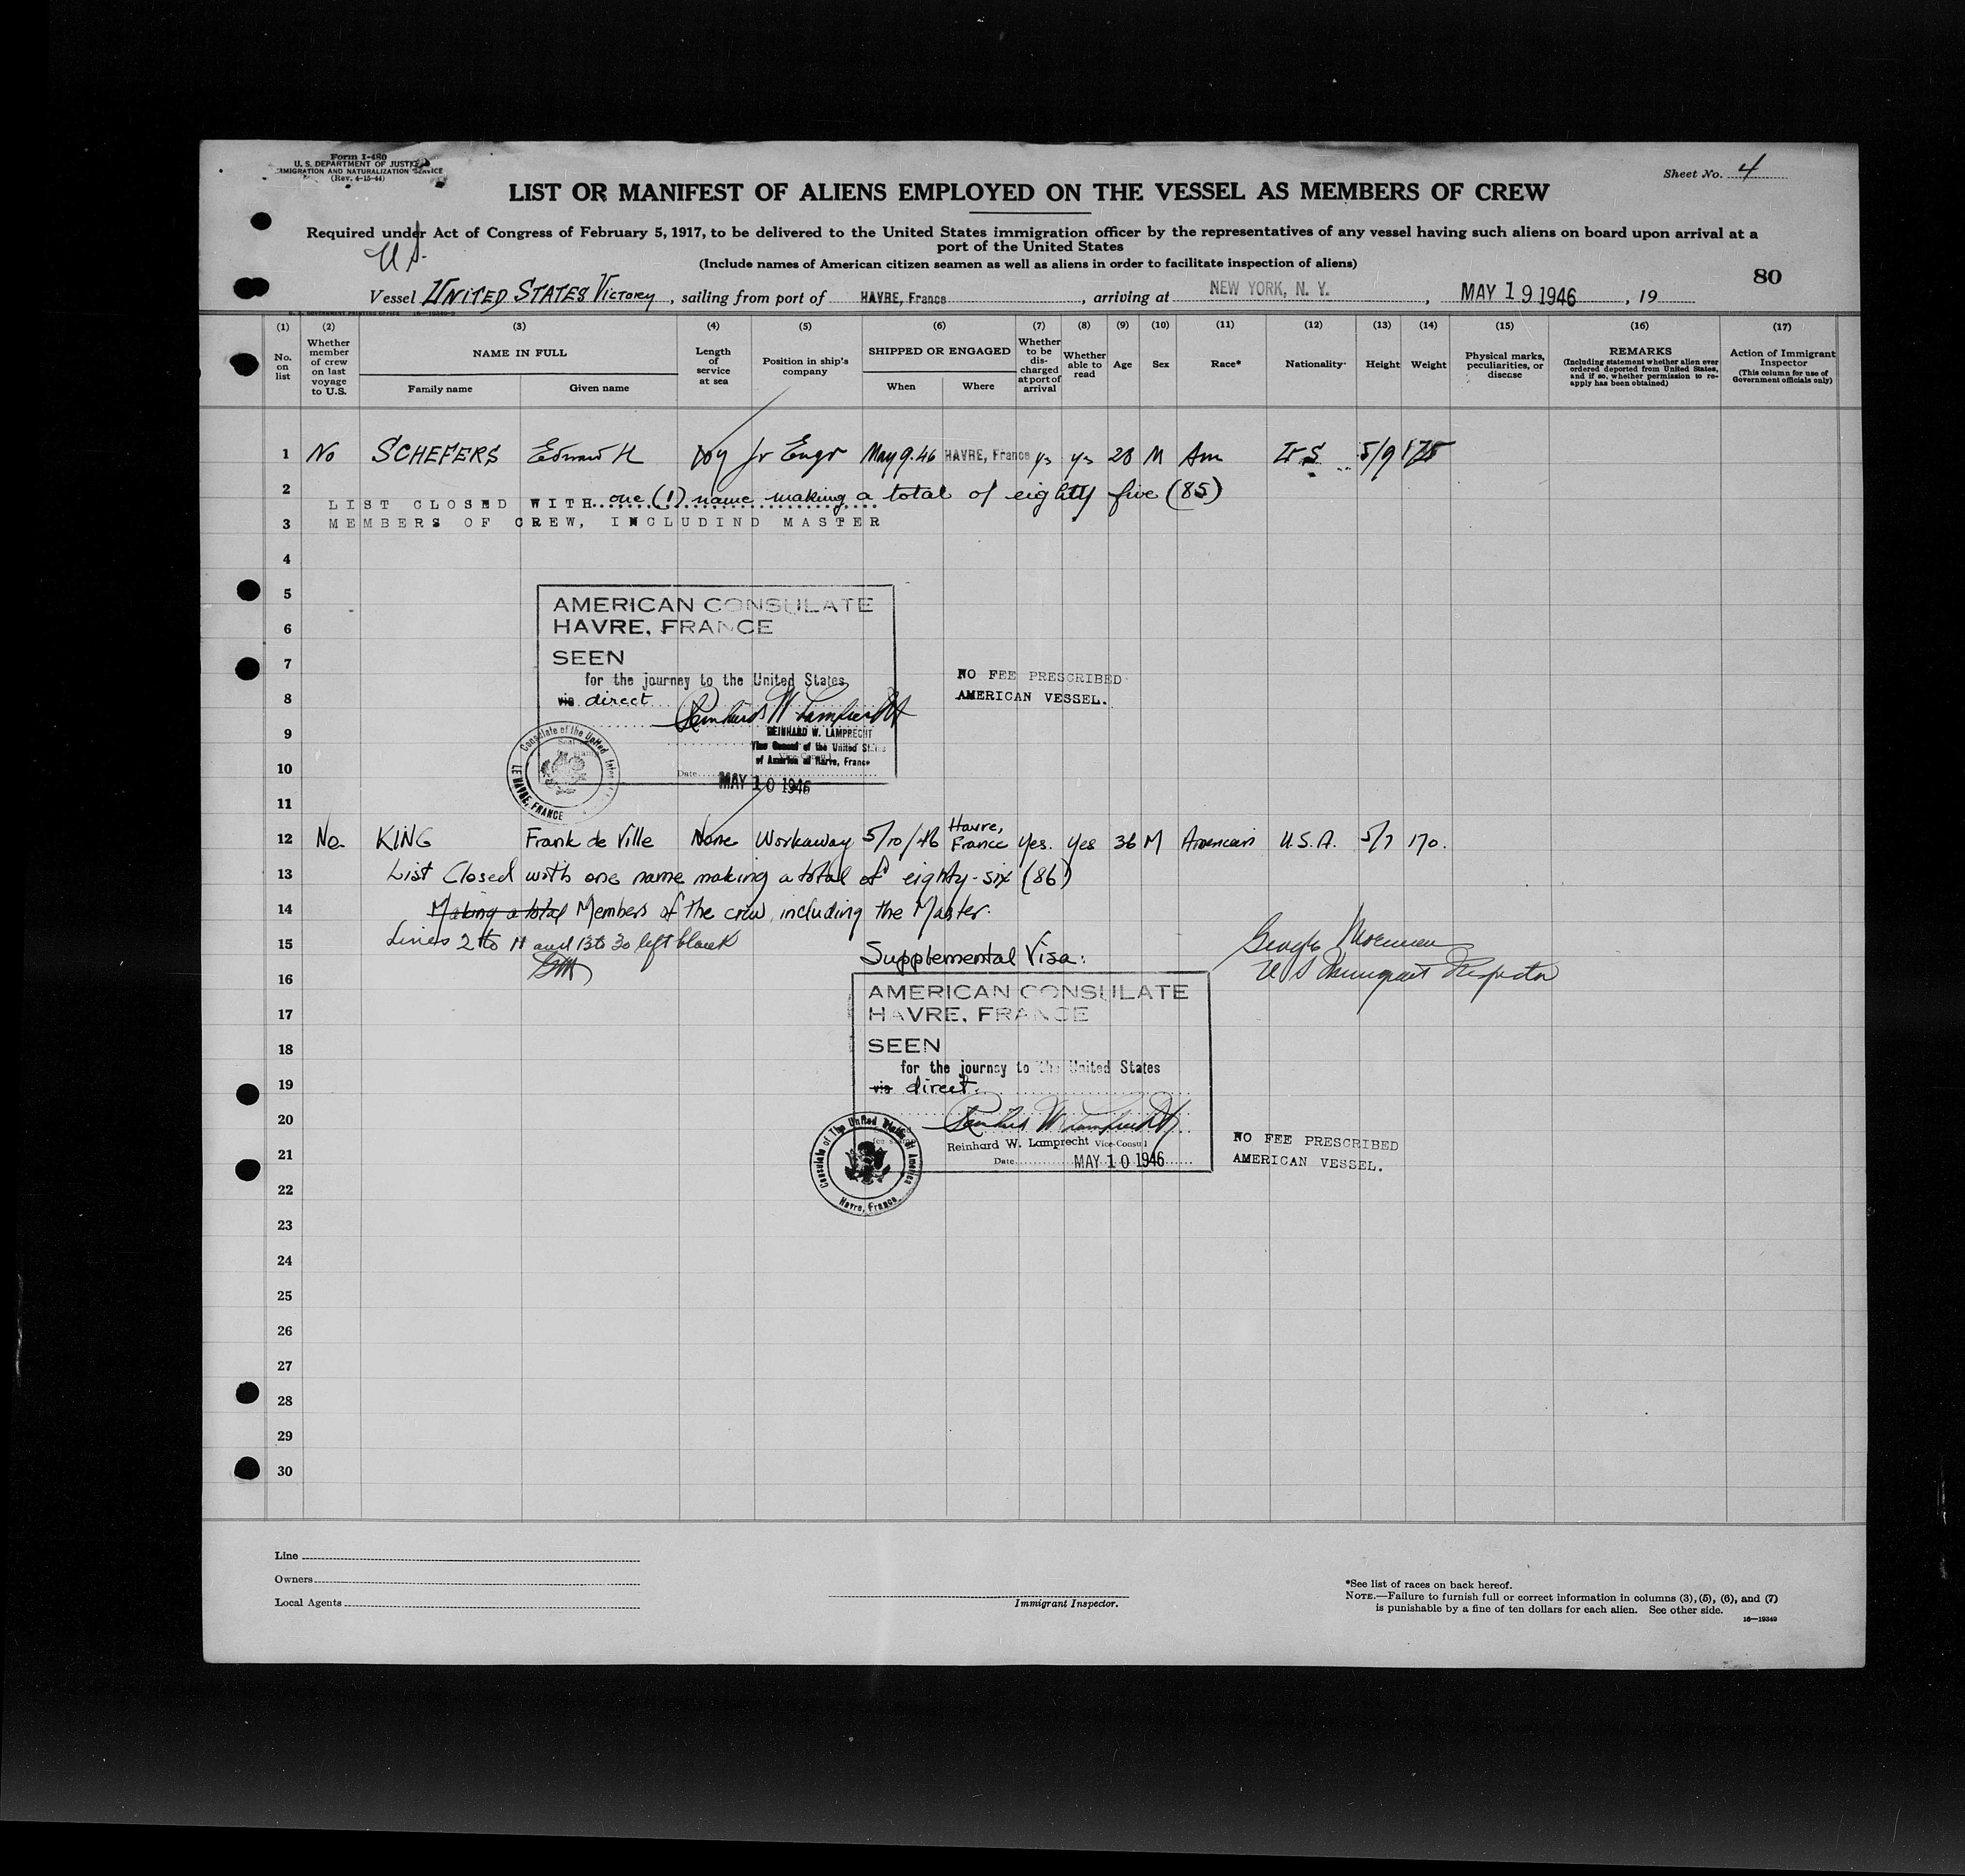 Form I-480
U. S. DEPARTMENT OF JUSTICE
IMMIGRATION AND NATURALIZATION SERVICE
(Rev. 4-15-44)
Sheet No. 4
LIST OR MANIFEST OF ALIENS EMPLOYED ON THE VESSEL AS MEMBERS OF CREW
Required under Act of Congress of February 5, 1917, to be delivered to the United States immigration officer by the representatives of any vessel having such aliens on board upon arrival at a
port of the United States
(Include names of American citizen seamen as well as aliens in order to facilitate inspection of aliens)
80
Vessel UNITED STATES VICTORY, sailing from port of HAVRE, France, arriving at NEW YORK, N. Y., MAY 19 1946, 19
(1) (2) (3) (4) (5) (6) (7) (8) (9) (10) (11) (12) (13) (14) (15) (16) (17)
No. on list
Whether member of crew on last voyage to U.S.
NAME IN FULL
Family name Given name
Length of service at sea
Position in ship's company
SHIPPED OR ENGAGED
When Where
Whether to be discharged at port of arrival
Whether able to read
Age
Sex
Race*
Nationality
Height
Weight
Physical marks, peculiarities, or disease
REMARKS
(Including statement whether alien ever ordered deported from United States, and if so, whether permission to reapply has been obtained)
Action of Immigrant Inspector
(This column for use of Government officials only)
1 No SCHEFERS Edward H Jr Engr May 9-46 HAVRE, France ys ys 28 M Am U S 5/9 175
2 LIST CLOSED WITH one (1) name making a total of eighty five (85)
3 MEMBERS OF CREW, INCLUDIND MASTER
4
5
AMERICAN CONSULATE
6 HAVRE, FRANCE
7 SEEN
for the journey to the United States
NO FEE PRESCRIBED
8 via direct
AMERICAN VESSEL.
9 REINHARD W. LAMPRECHT
Vice Consul of the United States
10 of America at Havre, France
Date MAY 10 1946
Consulate of the United States
LE HAVRE, FRANCE
11
12 No. KING Frank de Ville None Workaway 5/10/46 Havre, France Yes. Yes 36 M American U.S.A. 5/7 170.
13 List Closed with one name making a total of eighty-six (86)
14 Making a total Members of the crew, including the Master.
15 Lines 2 to 11 and 13 to 30 left blank
Supplemental Visa:
16
AMERICAN CONSULATE
17 HAVRE, FRANCE
18 SEEN
for the journey to the United States
19 via direct
20
Reinhard W. Lamprecht Vice-Consul
21 Date MAY 10 1946
NO FEE PRESCRIBED
AMERICAN VESSEL.
Consulate of The United States of America
Havre, France
22
23
24
25
26
27
28
29
30
Line
Owners
Local Agents
Immigrant Inspector.
*See list of races on back hereof.
NOTE.—Failure to furnish full or correct information in columns (3), (5), (6), and (7)
is punishable by a fine of ten dollars for each alien. See other side.
16—19349